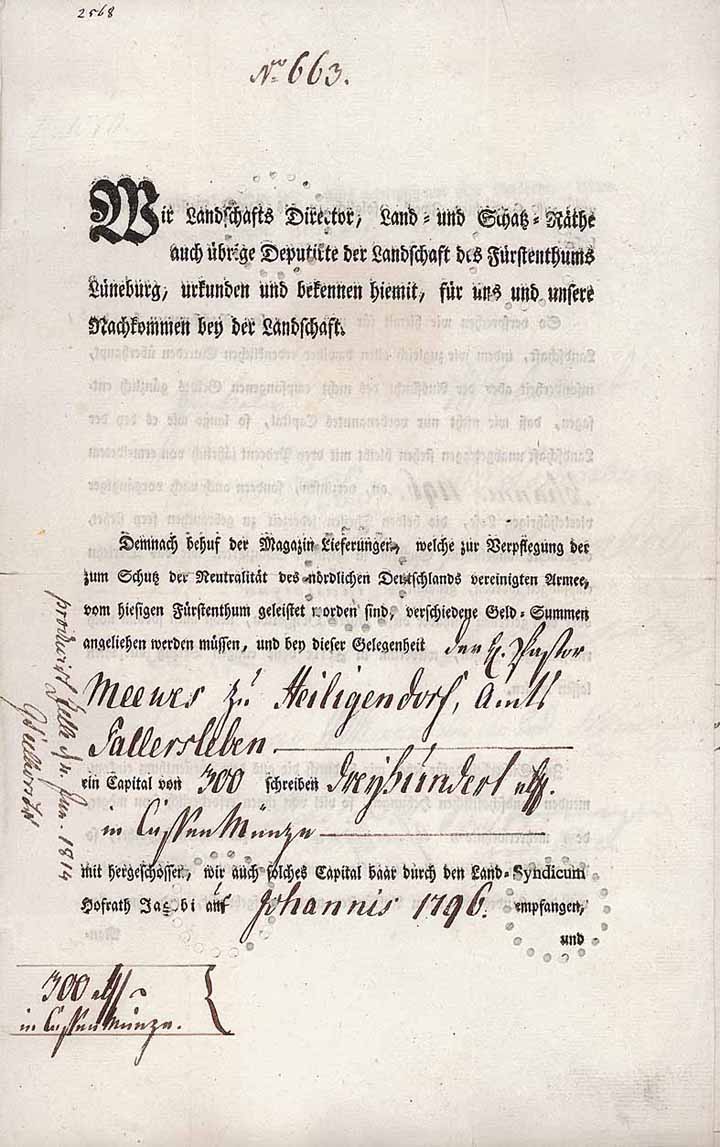 2568
No. 663.
Wir Landschafts Director, Land- und Schatz-Räthe
auch übrige Deputirte der Landschaft des Fürstenthums
Lüneburg, urkunden und bekennen hiemit, für uns und unsere
Nachkommen bey der Landschaft.
Demnach behuf der Magazin Lieferungen, welche zur Verpflegung der
zum Schutz der Neutralität des nördlichen Deutschlands vereinigten Armee,
vom hiesigen Fürstenthum geleistet worden sind, verschiedene Geld-Summen
angeliehen werden müssen, und bey dieser Gelegenheit der H. Pastor
Meewes zu Heiligendorf, Amts
Fallersleben
ein Capital von 300 schreiben Dreyhundert rthl.
in Cassen Münze
mit hergeschossen, wir auch solches Capital baar durch den Land-Syndicum
Hofrath Jacobi auf Johannis 1796. empfangen,
und
300 rthl
in Cassen Münze.
producirt Zelle Jan. 1814